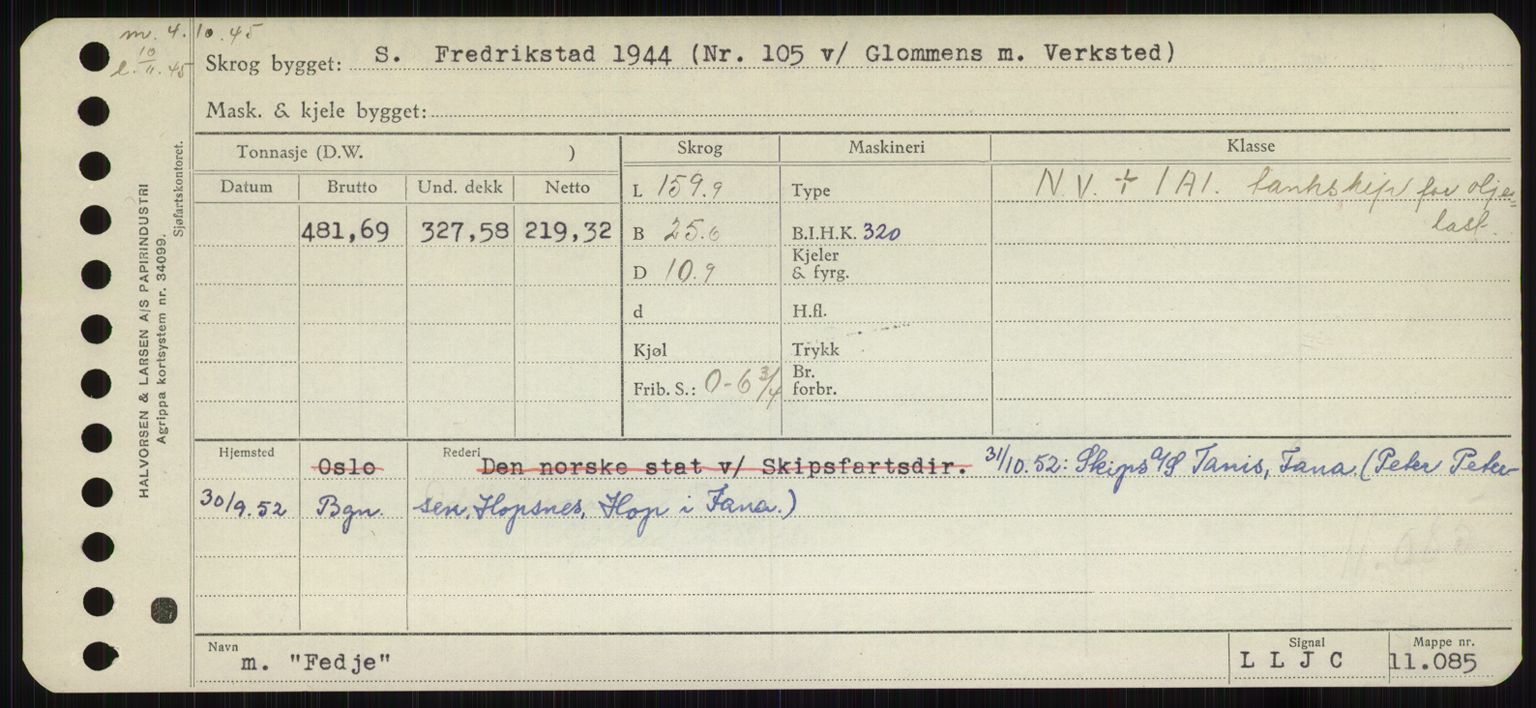 m. 4. 10. 45
l. 10/11. 45
Skrog bygget: S. Fredrikstad 1944 (Nr. 105 v/ Glommens m. Verksted)
Mask. & kjele bygget:
HALVORSEN & LARSEN A/S PAPIRINDUSTRI
Agrippa kortsystem nr. 34099.
Sjøfartskontoret.
Tonnasje (D.W. ) Skrog Maskineri Klasse
Datum Brutto Und. dekk Netto L 159.9 Type N.V. + 1A1. tankskip for olje=
481,69 327,58 219,32 B 25.6 B.I.H.K. 320 last.
D 10.9 Kjeler
& fyrg.
d H.fl.
Kjøl Trykk
Frib. S.: 0-6 3/4 Br.
forbr.
Hjemsted Rederi
Oslo Den norske stat v/ Skipsfartsdir. 31/10.52: Skips A/S Tanis, Fana. (Peter Peter-
30/9.52 Bgn. sen, Hopsnes, Hop i Fana.)
Navn Signal Mappe nr.
m. "Fedje" L L J C 11.085